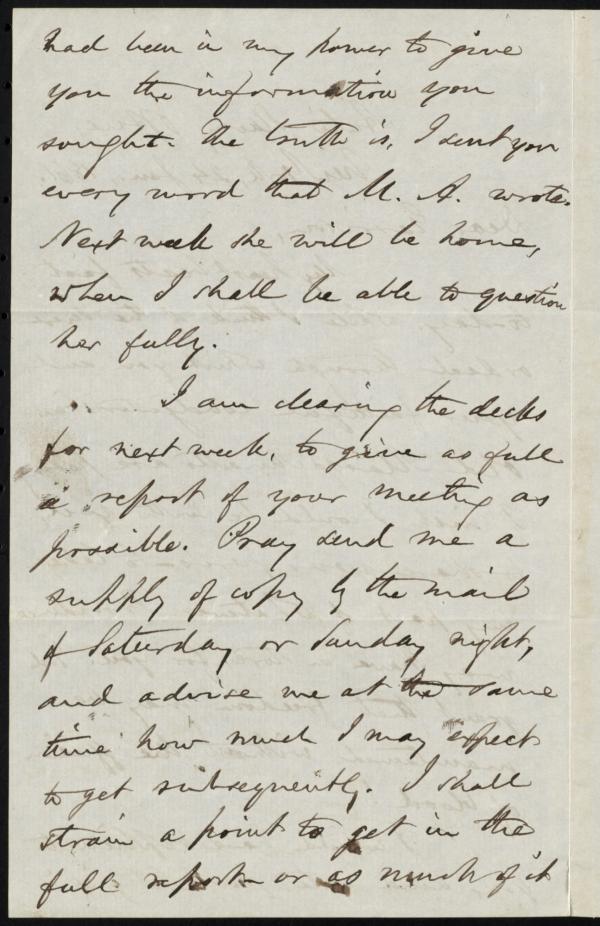 had been in my power to give
you the information you
sought. The truth is, I sent you
every word that M. A. wrote.
Next week she will be home,
when I shall be able to question
her fully.
I am clearing the decks
for next week, to give as full
a report of your meeting as
possible. Pray send me a
supply of copy by the mail
of Saturday or Sunday night,
and advise me at the same
time how much I may expect
to get subsequently. I shall
strain a point to get in the
full report—or as much of it